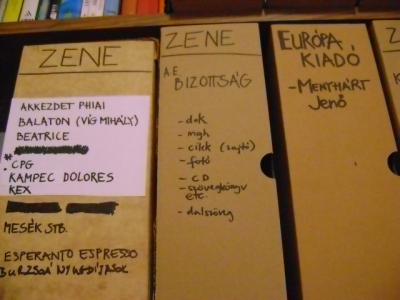 ZENE
AKKEZDET PHIAI
BALATON (VÍG MIHÁLY)
BEATRICE
CPG
KAMPEC DOLORES
KEX
MESÉK STB.
ESPERANTO ESPRESSO
BURZSOÁ NYUGDÍJASOK
ZENE
A.E.
BIZOTTSÁG
- dok
- mgh
- cikk (sajtó)
- fotó
- CD
- szövegkönyv
etc.
- dalszöveg
EURÓPA
KIADÓ
- MENYHÁRT
Jenő